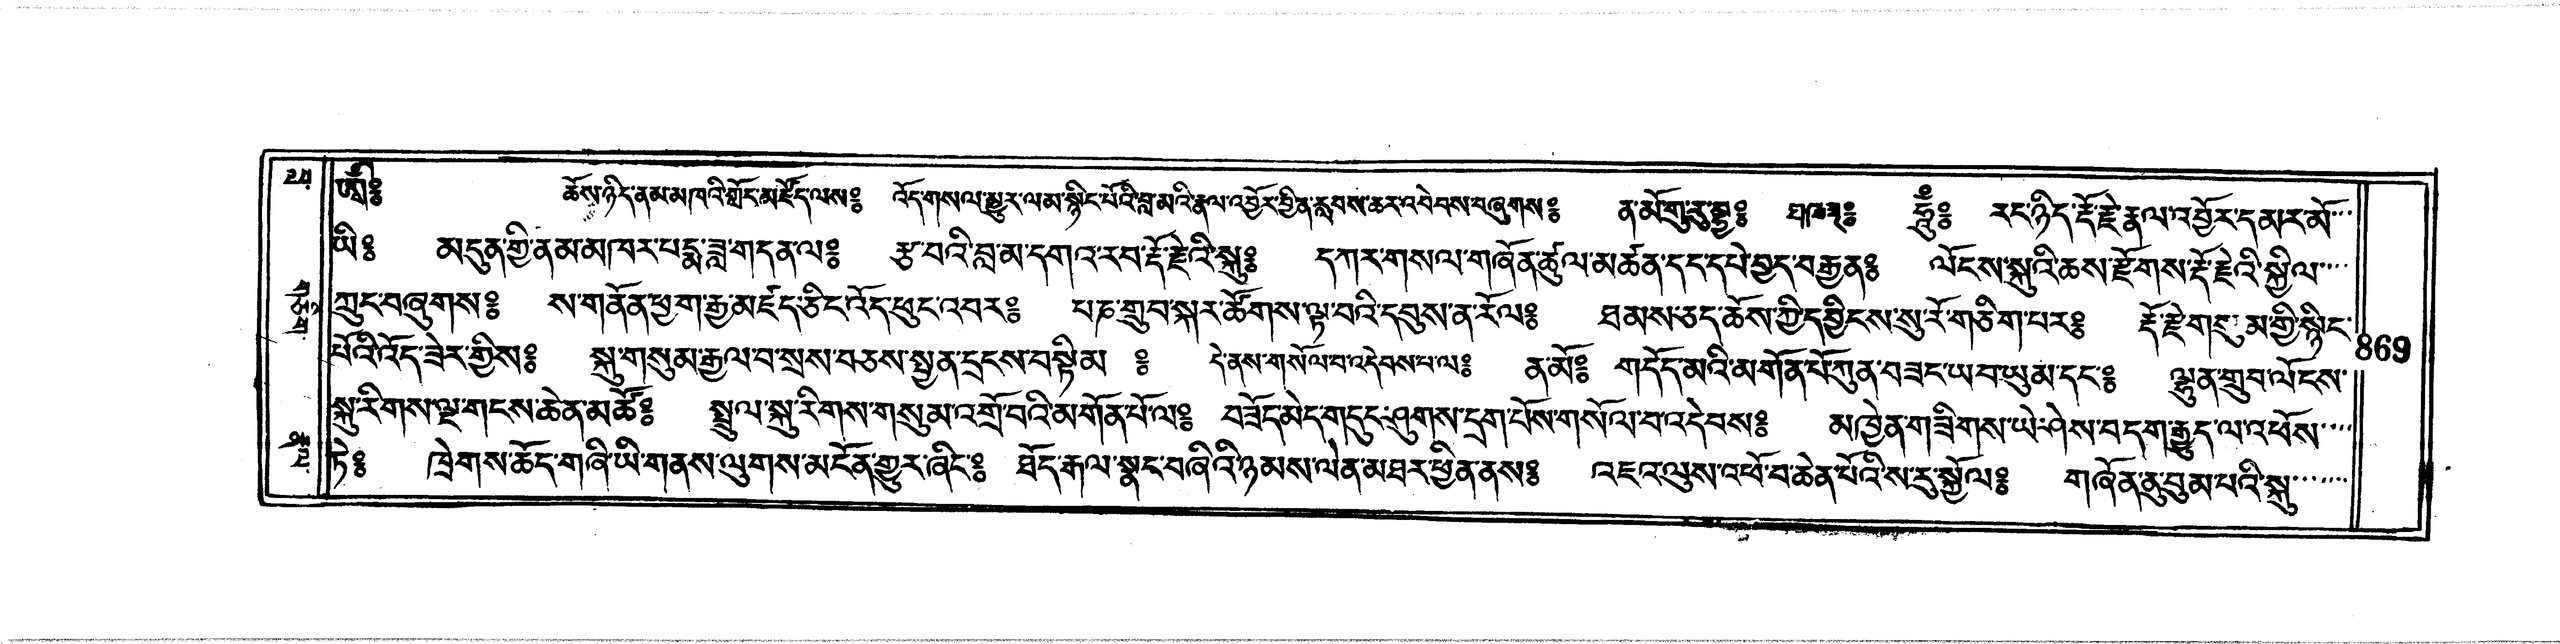 ༀ༔ ཆོས་ཉིད་ནམ་མཁའི་ཀློང་མཛོད་ལས༔ འོད་གསལ་མྱུར་ལམ་སྙིང་པོའི་བླ་མའི་རྣལ་འབྱོར་བྱིན་རླབས་ཆར་འབེབས་བཞུགས༔ ན་མོ་གུ་རུ་བྷྱ༔ ཧཱུྃ༔ རང་ཉིད་རྡོ་རྗེ་རྣལ་འབྱོར་དམར་མོ་
ཡི༔ མདུན་གྱི་ནམ་མཁར་པདྨ་ཟླ་གདན་ལ༔ རྩ་བའི་བླ་མ་དགའ་རབ་རྡོ་རྗེའི་སྐུ༔ དཀར་གསལ་གཞོན་ཚུལ་མཚན་དང་དཔེ་བྱད་བརྒྱན༔ ལོངས་སྐུའི་ཆས་རྫོགས་རྡོ་རྗེའི་སྐྱིལ་
ཀྲུང་བཞུགས༔ ས་གནོན་ཕྱག་རྒྱ་མཛད་ཅིང་འོད་ཕུང་འབར༔ པཎ་གྲུབ་སྐར་ཚོགས་ལྟ་བའི་དབུས་ན་རོལ༔ ཐམས་ཅད་ཆོས་ཀྱི་དབྱིངས་སུ་རོ་གཅིག་པར༔ རྡོ་རྗེ་གདུ་མ་གྱི་སྙིང་
པོའི་འོད་ཟེར་གྱིས༔ སྐུ་གསུམ་རྒྱལ་བ་སྲས་བཅས་སྤྱན་དྲངས་བསྟིམ༔ དེ་ནས་གསོལ་བ་འདེབས་པ་ལ༔ ན་མོ༔ གདོད་མའི་མགོན་པོ་ཀུན་བཟང་ཡབ་ཡུམ་དང་༔ ལྷུན་གྲུབ་ལོངས་ 869
སྐུ་རིགས་ལྔ་གངས་ཆེན་མཚོ༔ སྤྲུལ་སྐུ་རིགས་གསུམ་འགྲོ་བའི་མགོན་པོ་ལ༔ བཟོད་མེད་གདུང་ཤུགས་དྲག་པོས་གསོལ་བ་འདེབས༔ མཁྱེན་གཟིགས་ཡེ་ཤེས་བདག་རྒྱུད་ལ་འཕོས་
ཏེ༔ ཁྲེགས་ཆོད་གཞི་ཡི་གནས་ལུགས་མངོན་གྱུར་ཞིང་༔ ཐོད་རྒལ་སྣང་བཞིའི་ཉམས་ལེན་མཐར་ཕྱིན་ནས༔ འཇའ་ལུས་འཕོ་བ་ཆེན་པོའི་ས་རུ་སྐྱོལ༔ གཞོན་ནུ་བུམ་པའི་སྐུ་